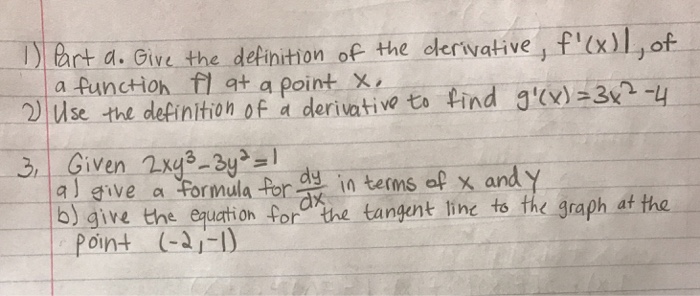 1) Part a. Give the definition of the derivative, f'(x)|, of
a function f| at a point x.
2) Use the definition of a derivative to find g'(x)=3x²-4
3, Given 2xy³-3y²=1
a) give a formula for dy/dx in terms of x and y
b) give the equation for the tangent line to the graph at the
point (-2,-1)